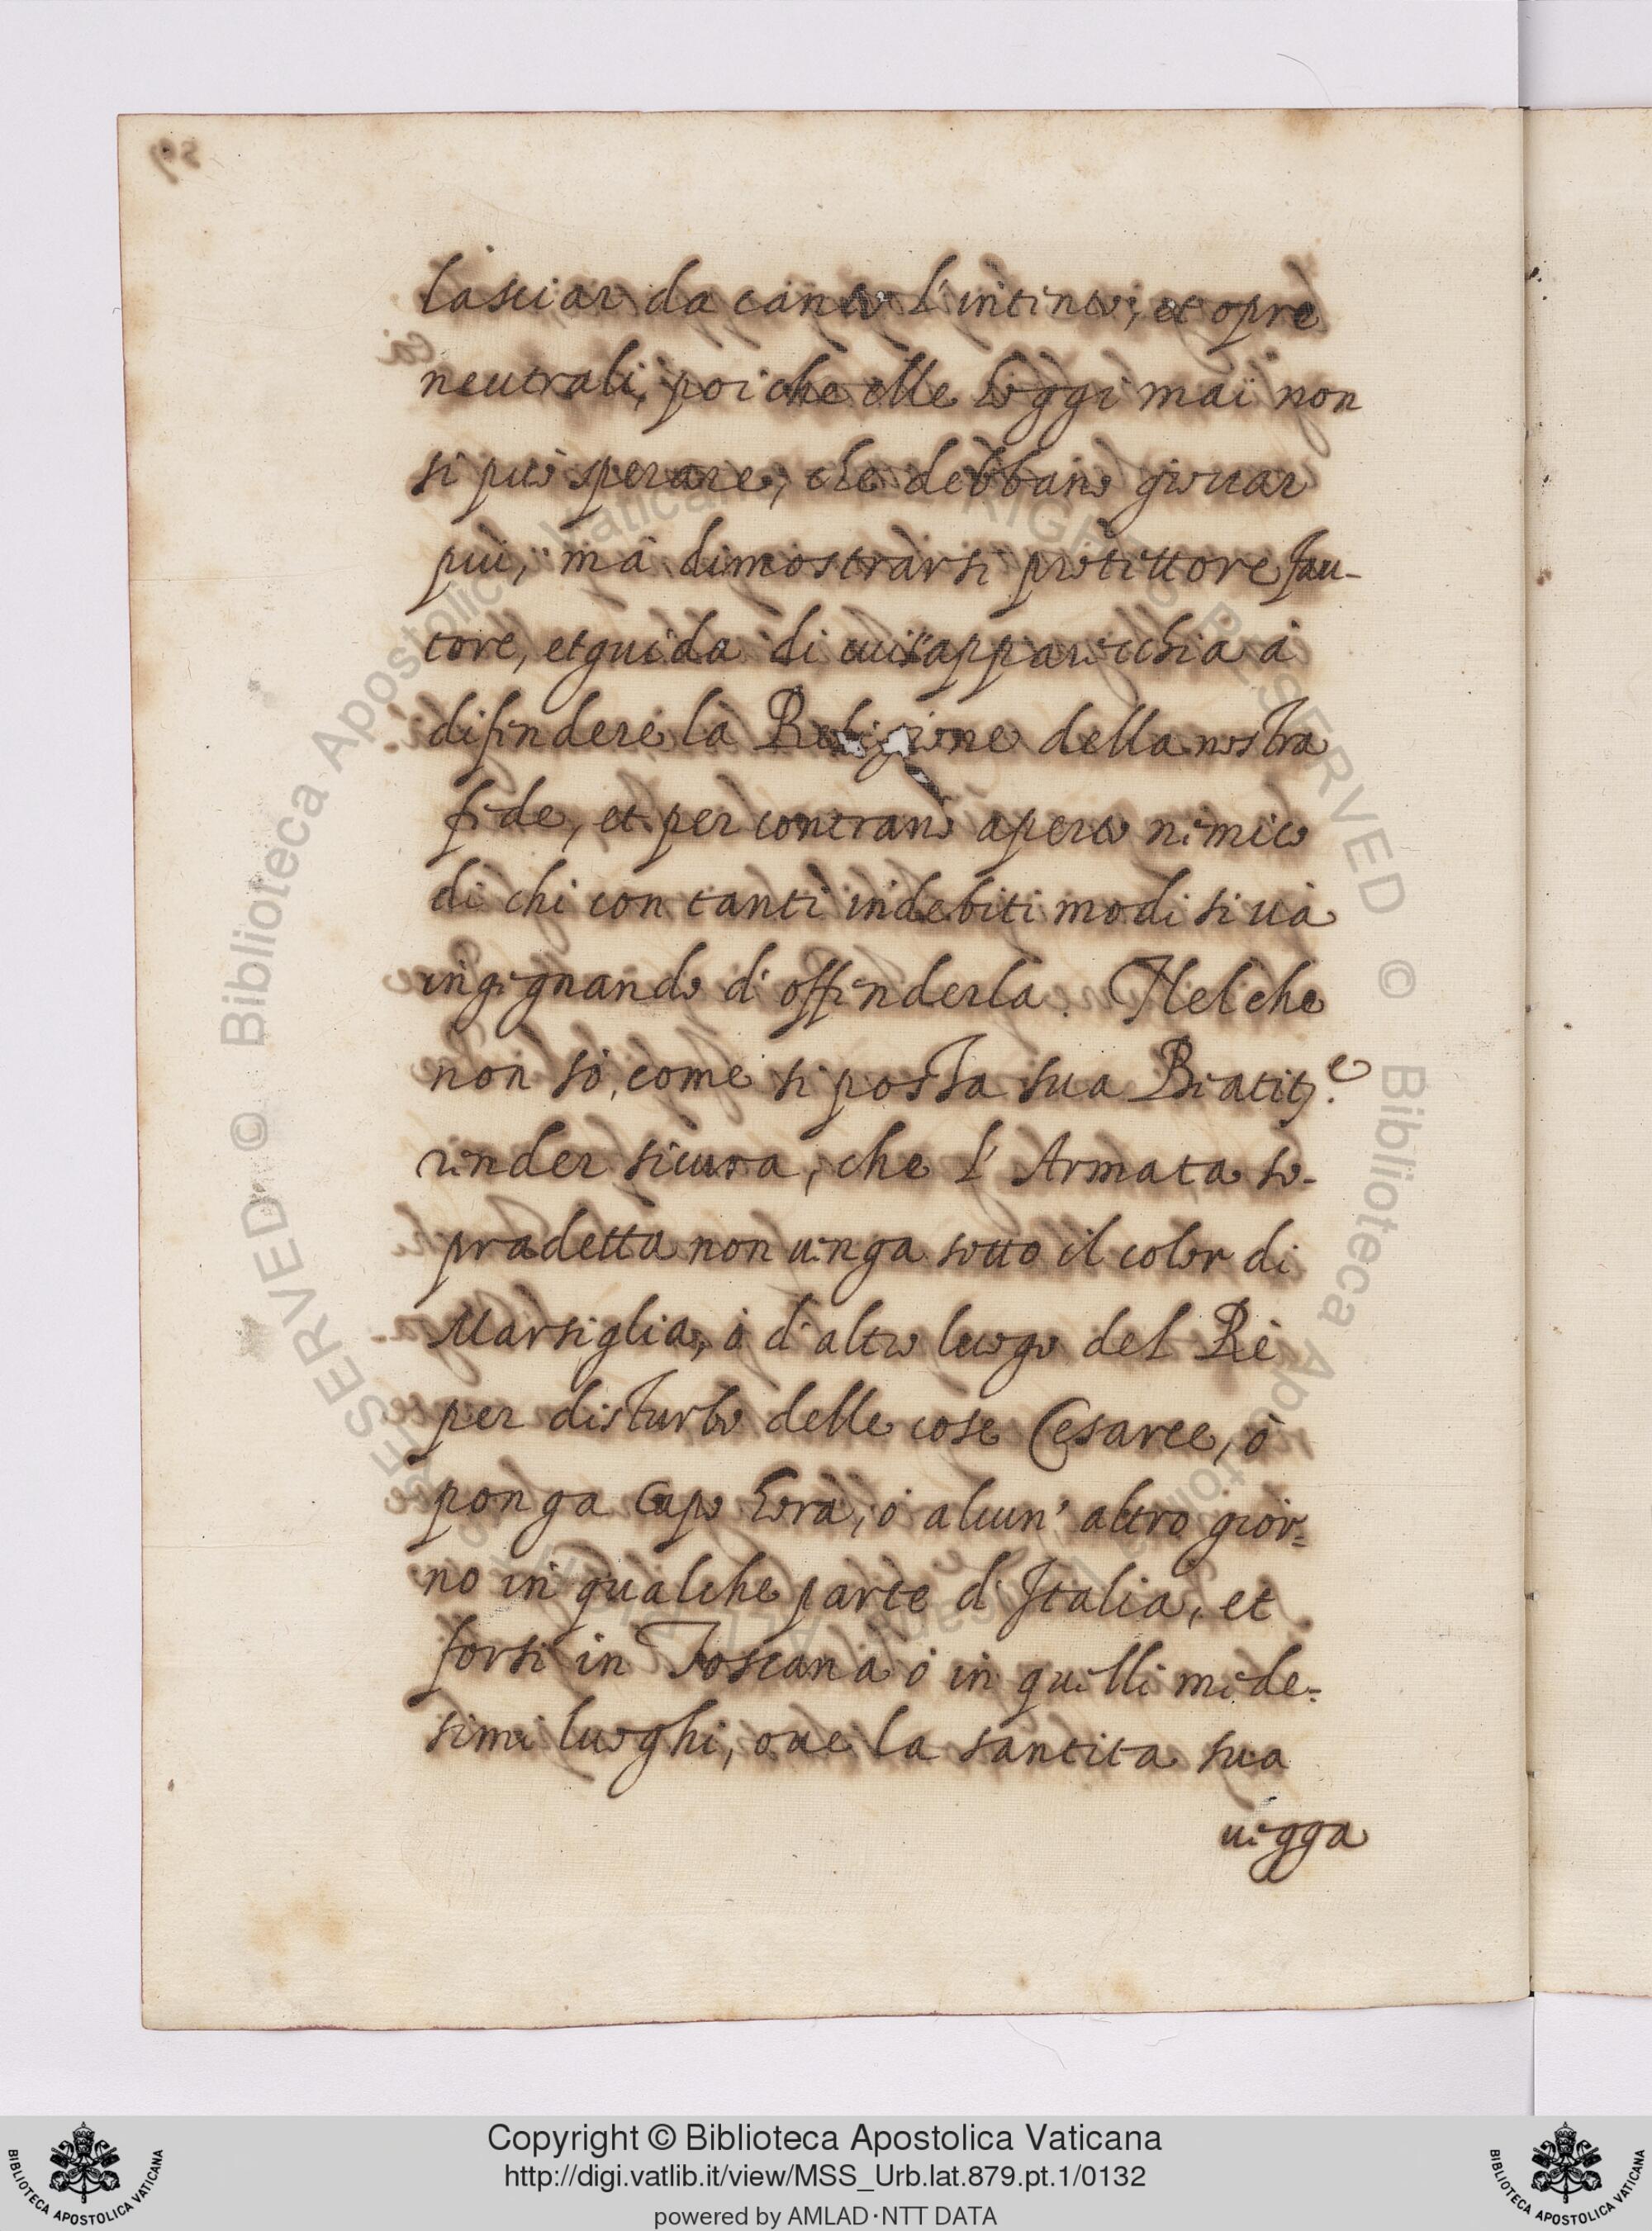 lasciar da canto l'intento, et opre
neutrali, poi che elle hoggi mai non
si può sperare, che debbano giovar
più, mà dimostrarsi protettore fau-
tore, et guida di cui s'apparecchia à
difendere la Religione della nostra
fede, et per contrario aperto nemico
di chi con tanti indebiti modi si uà
ingegnando d'offenderla. Nel che
non sò, come si possa sua Beatit.e
render sicura, che l'Armata so-
pradetta non uenga sotto il color di
Marsiglia, ò d'altro luogo del Rè
per disturbo delle cose Cesaree, ò
ponga Capo hora, ò alcun' altro gior-
no in qualche parte d'Italia, et
forsi in Toscana ò in quelli mede-
simi luoghi, oue la santita sua
uegga
Copyright © Biblioteca Apostolica Vaticana
http://digi.vatlib.it/view/MSS_Urb.lat.879.pt.1/0132
powered by AMLAD·NTT DATA
BIBLIOTECA APOSTOLICA VATICANA
BIBLIOTECA APOSTOLICA VATICANA